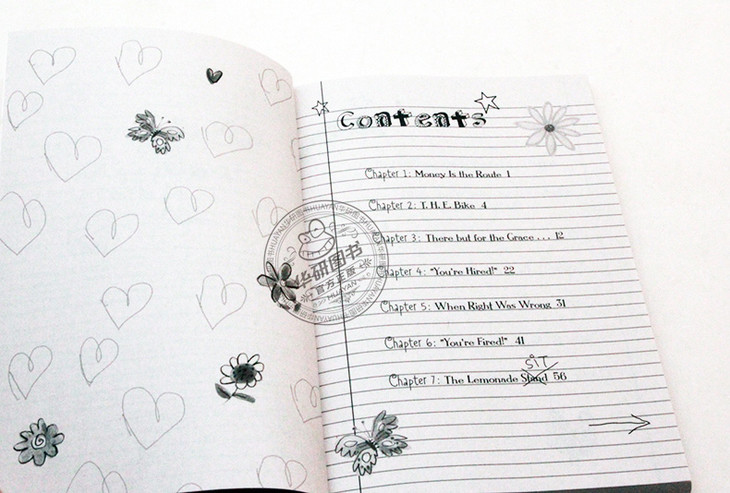 Contents
Chapter 1: Money Is the Route 1
Chapter 2: T. H. E. Bike 4
Chapter 3: There but for the Grace . . . 12
Chapter 4: "You're Hired!" 22
Chapter 5: When Right Was Wrong 31
Chapter 6: "You're Fired!" 41
SIT
Chapter 7: The Lemonade Stand 56
华研图书
官方正版
HUAYAN